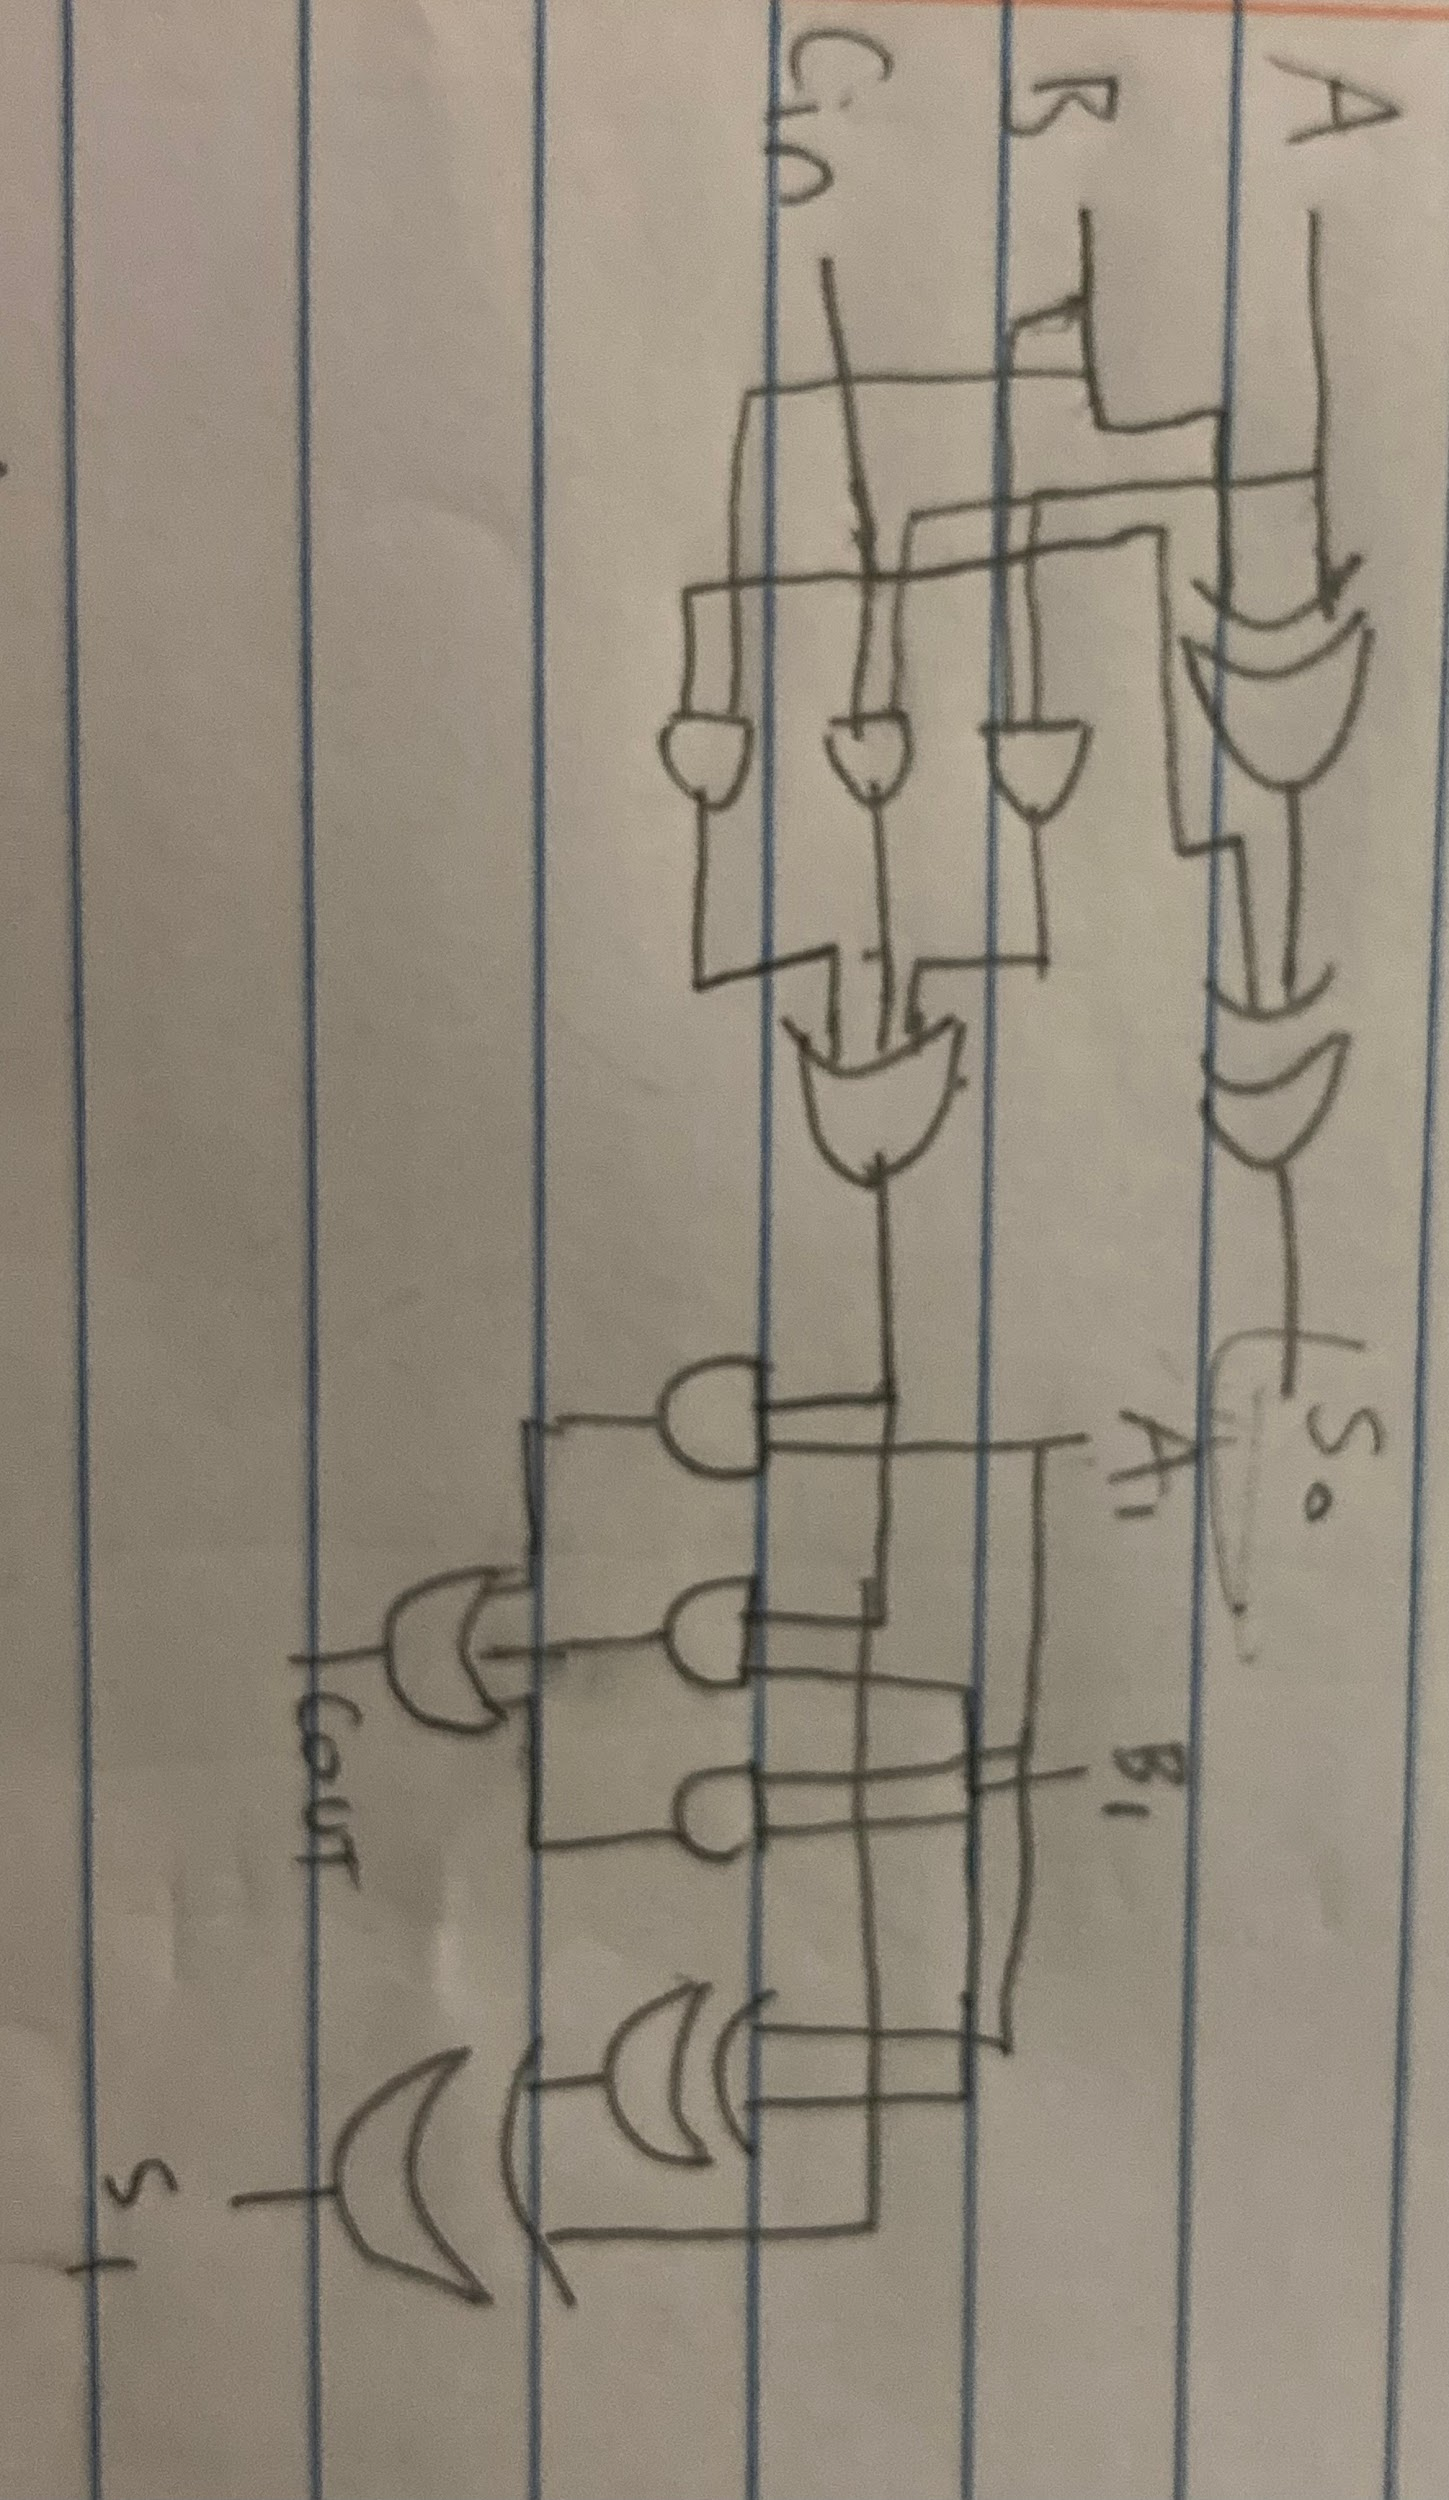 A
B
Cin
S0
A1
B1
Cout
S1